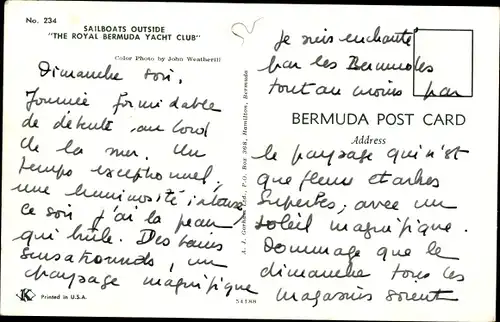 No. 234
SAILBOATS OUTSIDE
"THE ROYAL BERMUDA YACHT CLUB"
Color Photo by John Weatherill
Dimanche soir.
Journée formidable
de détente au bord
de la mer. Un
temps exceptionnel,
une luminosité intense,
ce soir j'ai la peau
qui brûle. Des bains
sensationnels, un
paysage magnifique
K
Printed in U.S.A.
A. J. Gorham Ltd., P.O. Box 398, Hamilton, Bermuda
54188
Je suis enchanté
par les Bermudes
tout au moins par
BERMUDA POST CARD
Address
le paysage qui n'est
que fleurs et arbres
superbes, avec un
soleil magnifique.
Dommage que le
dimanche tous les
magasins soient